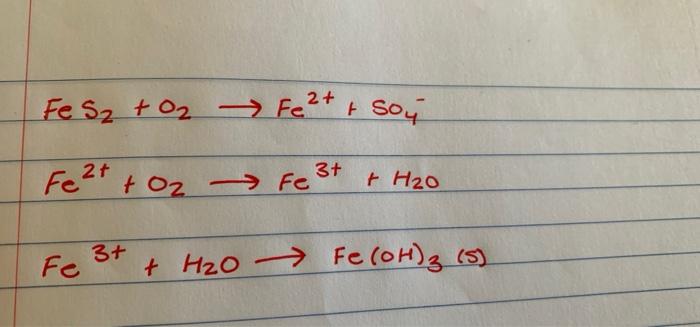 FeS₂ + O₂ → Fe²⁺ + SO₄⁻
Fe²⁺ + O₂ → Fe³⁺ + H₂O
Fe³⁺ + H₂O → Fe(OH)₃ (s)